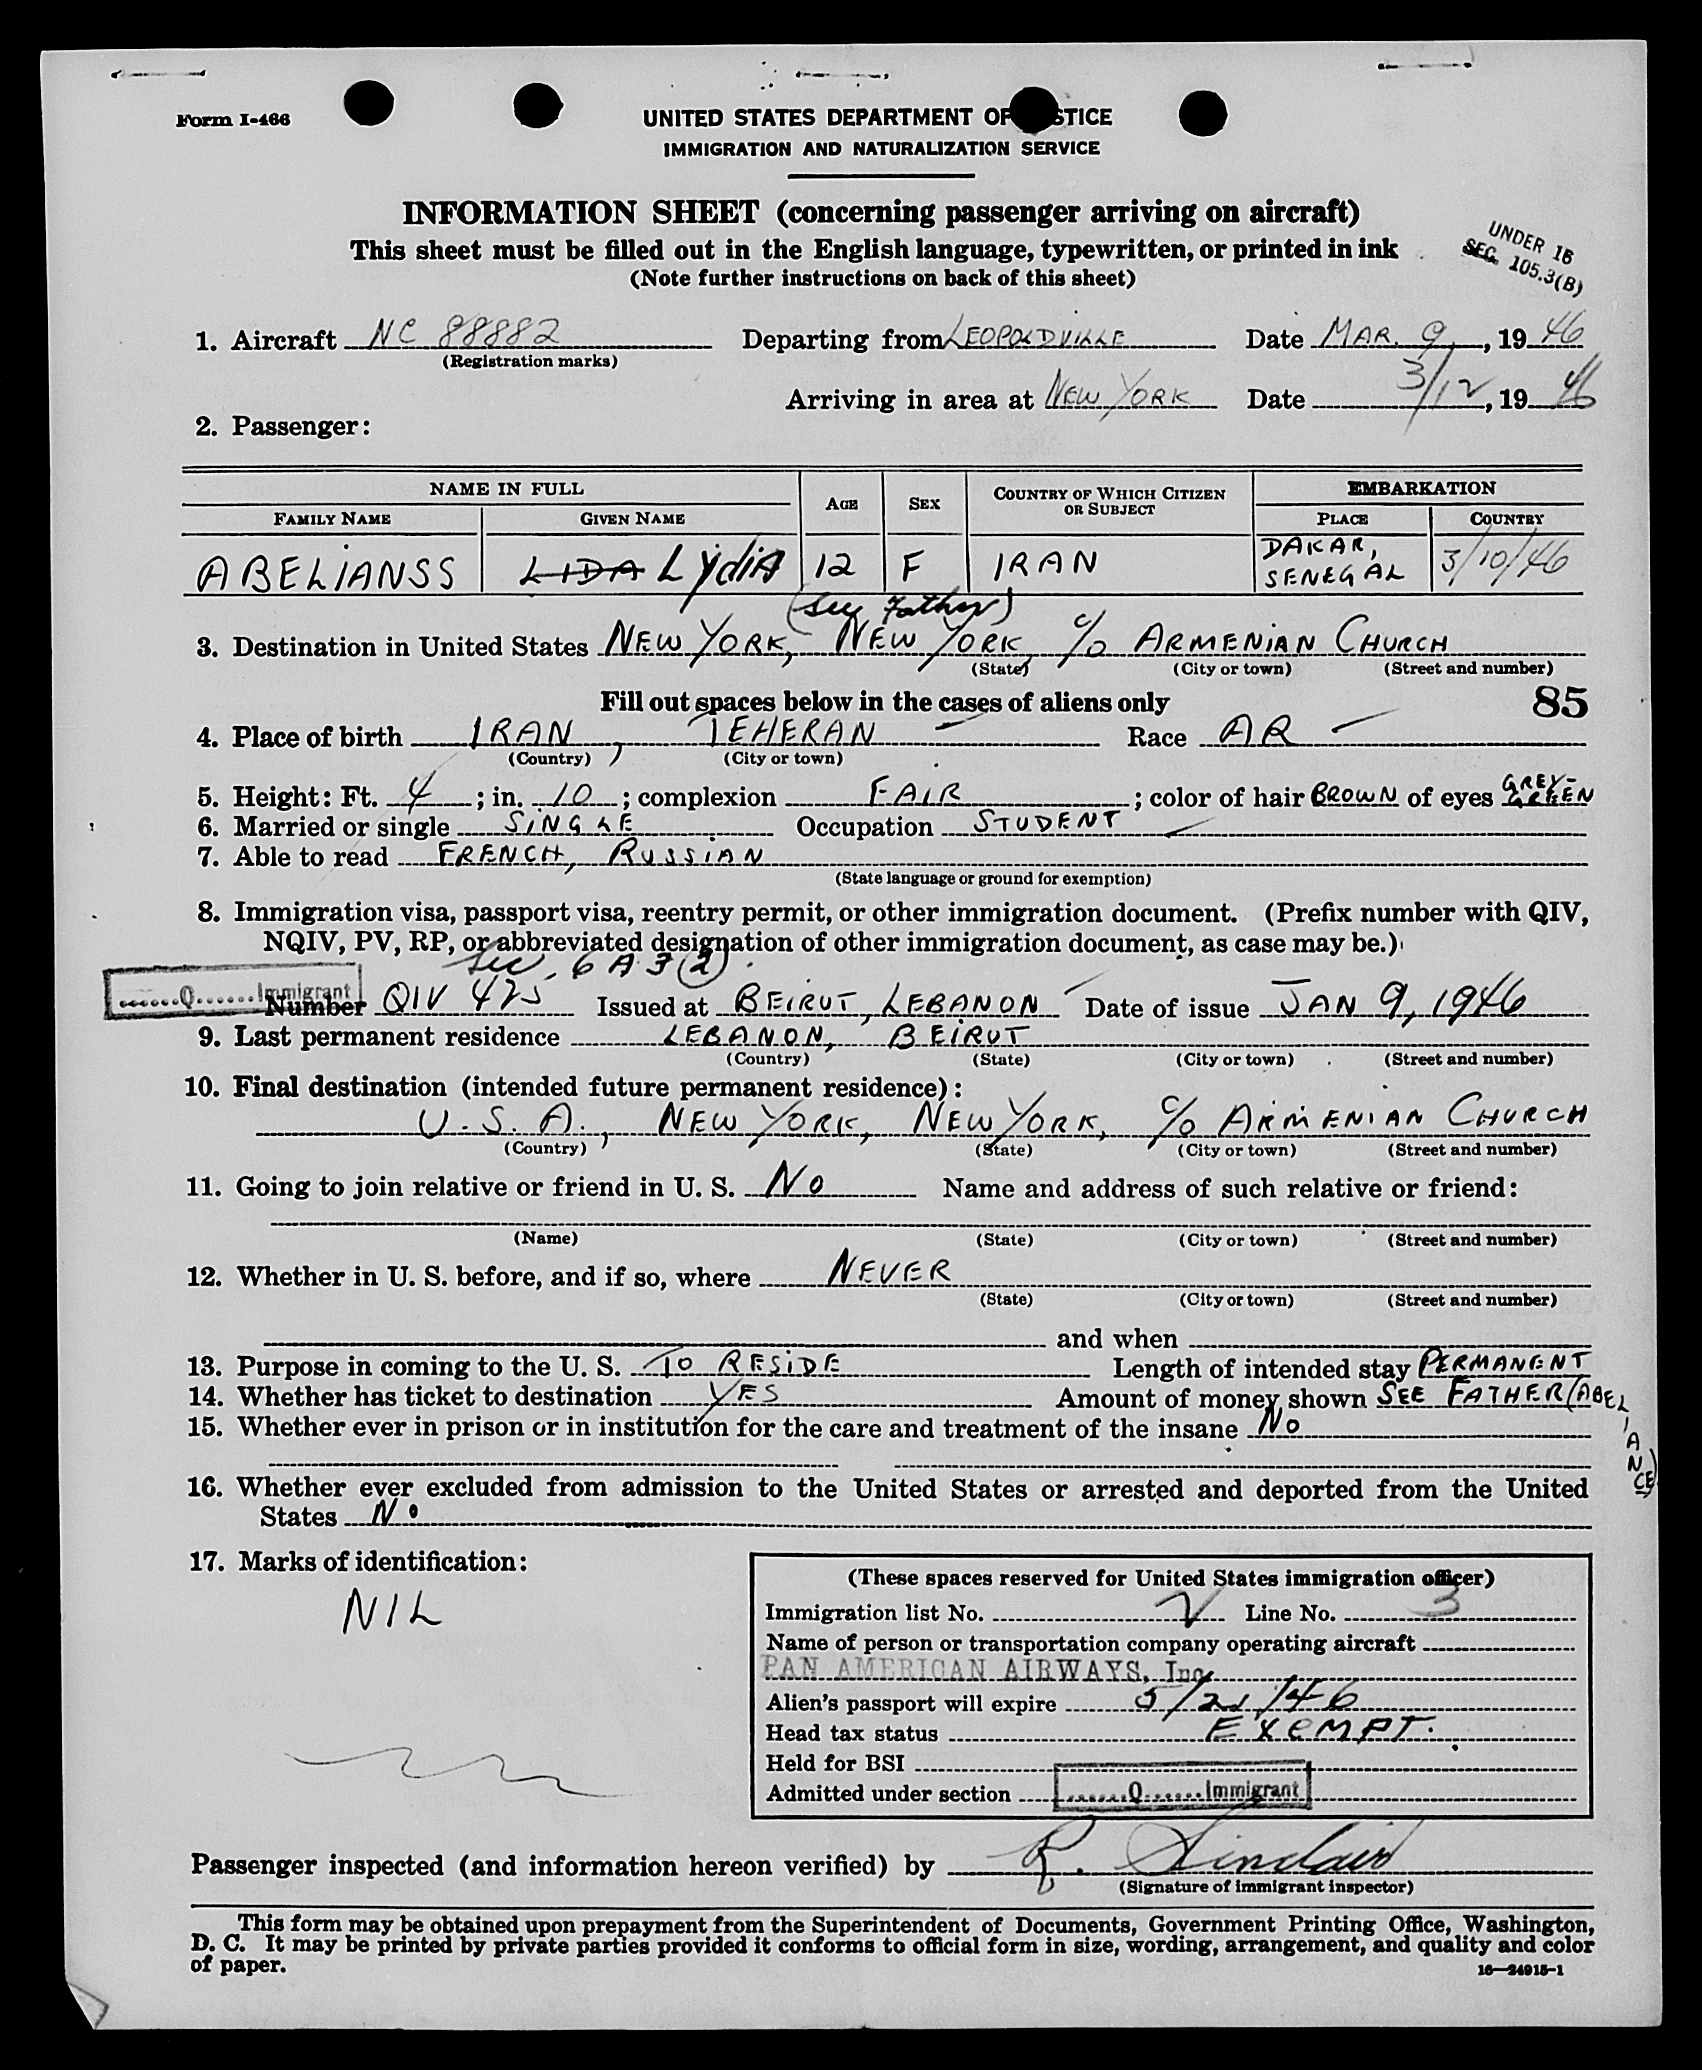 Form I-466
UNITED STATES DEPARTMENT OF STICE
IMMIGRATION AND NATURALIZATION SERVICE
INFORMATION SHEET (concerning passenger arriving on aircraft)
This sheet must be filled out in the English language, typewritten, or printed in ink
(Note further instructions on back of this sheet)
UNDER 16
SEC. 105.3(B)
1. Aircraft NC 88882 Departing from LEOPOLDVILLE Date MAR. 9, 1946
(Registration marks)
Arriving in area at NEW YORK Date 3/12, 1946
2. Passenger:
NAME IN FULL AGE SEX COUNTRY OF WHICH CITIZEN OR SUBJECT EMBARKATION
FAMILY NAME GIVEN NAME PLACE COUNTRY
ABELIANSS LIDA LydiA 12 F IRAN DAKAR, SENEGAL 3/10/46
(See Father)
3. Destination in United States NEW YORK, NEW YORK, c/o ARMENIAN CHURCH
(State) (City or town) (Street and number)
Fill out spaces below in the cases of aliens only 85
4. Place of birth IRAN, TEHERAN Race AR
(Country) (City or town)
5. Height: Ft. 4; in. 10; complexion FAIR; color of hair BROWN of eyes GREY-GREEN
6. Married or single SINGLE Occupation STUDENT
7. Able to read FRENCH, RUSSIAN
(State language or ground for exemption)
8. Immigration visa, passport visa, reentry permit, or other immigration document. (Prefix number with QIV,
NQIV, PV, RP, or abbreviated designation of other immigration document, as case may be.)
Sec. 6 A 3 (2)
Q Immigrant
Number QIV 425 Issued at BEIRUT, LEBANON Date of issue JAN 9, 1946
9. Last permanent residence LEBANON, BEIRUT
(Country) (State) (City or town) (Street and number)
10. Final destination (intended future permanent residence):
U.S.A., NEW YORK, NEW YORK, c/o ARMENIAN CHURCH
(Country) (State) (City or town) (Street and number)
11. Going to join relative or friend in U. S. NO Name and address of such relative or friend:
(Name) (State) (City or town) (Street and number)
12. Whether in U. S. before, and if so, where NEVER
(State) (City or town) (Street and number)
and when
13. Purpose in coming to the U. S. TO RESIDE Length of intended stay PERMANENT
14. Whether has ticket to destination YES Amount of money shown SEE FATHER (ABELIANCE)
15. Whether ever in prison or in institution for the care and treatment of the insane NO
16. Whether ever excluded from admission to the United States or arrested and deported from the United
States NO
17. Marks of identification:
NIL
(These spaces reserved for United States immigration officer)
Immigration list No. 2 Line No. 3
Name of person or transportation company operating aircraft
PAN AMERICAN AIRWAYS, Inc.
Alien's passport will expire 5/21/46
Head tax status EXEMPT.
Held for BSI
Admitted under section Q Immigrant
Passenger inspected (and information hereon verified) by R. Sinclair
(Signature of immigrant inspector)
This form may be obtained upon prepayment from the Superintendent of Documents, Government Printing Office, Washington,
D. C. It may be printed by private parties provided it conforms to official form in size, wording, arrangement, and quality and color
of paper.
16—24915-1